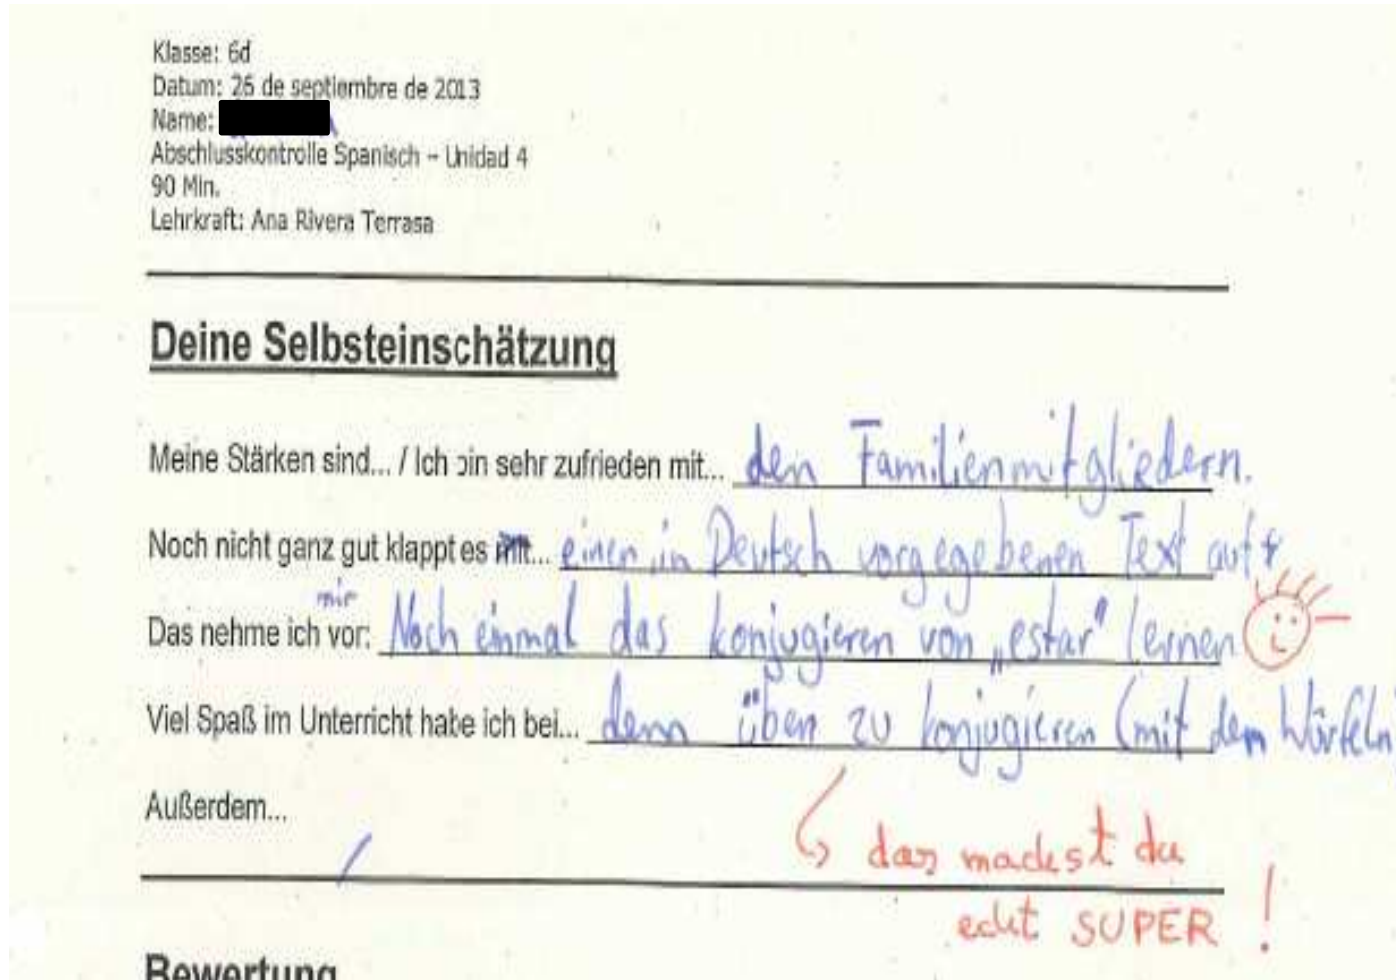 Klasse: 6d
Datum: 26 de septiembre de 2013
Name:
Abschlusskontrolle Spanisch – Unidad 4
90 Min.
Lehrkraft: Ana Rivera Terrasa
Deine Selbsteinschätzung
Meine Stärken sind... / Ich bin sehr zufrieden mit... den Familienmitgliedern.
Noch nicht ganz gut klappt es mit... einen in Deutsch vorgegebenen Text auf
mir
Das nehme ich vor: Noch einmal das konjugieren von „estar" lernen
Viel Spaß im Unterricht habe ich bei... denn üben zu konjugieren (mit dem Würfeln
Außerdem...
das machst du
echt SUPER !
Bewertung